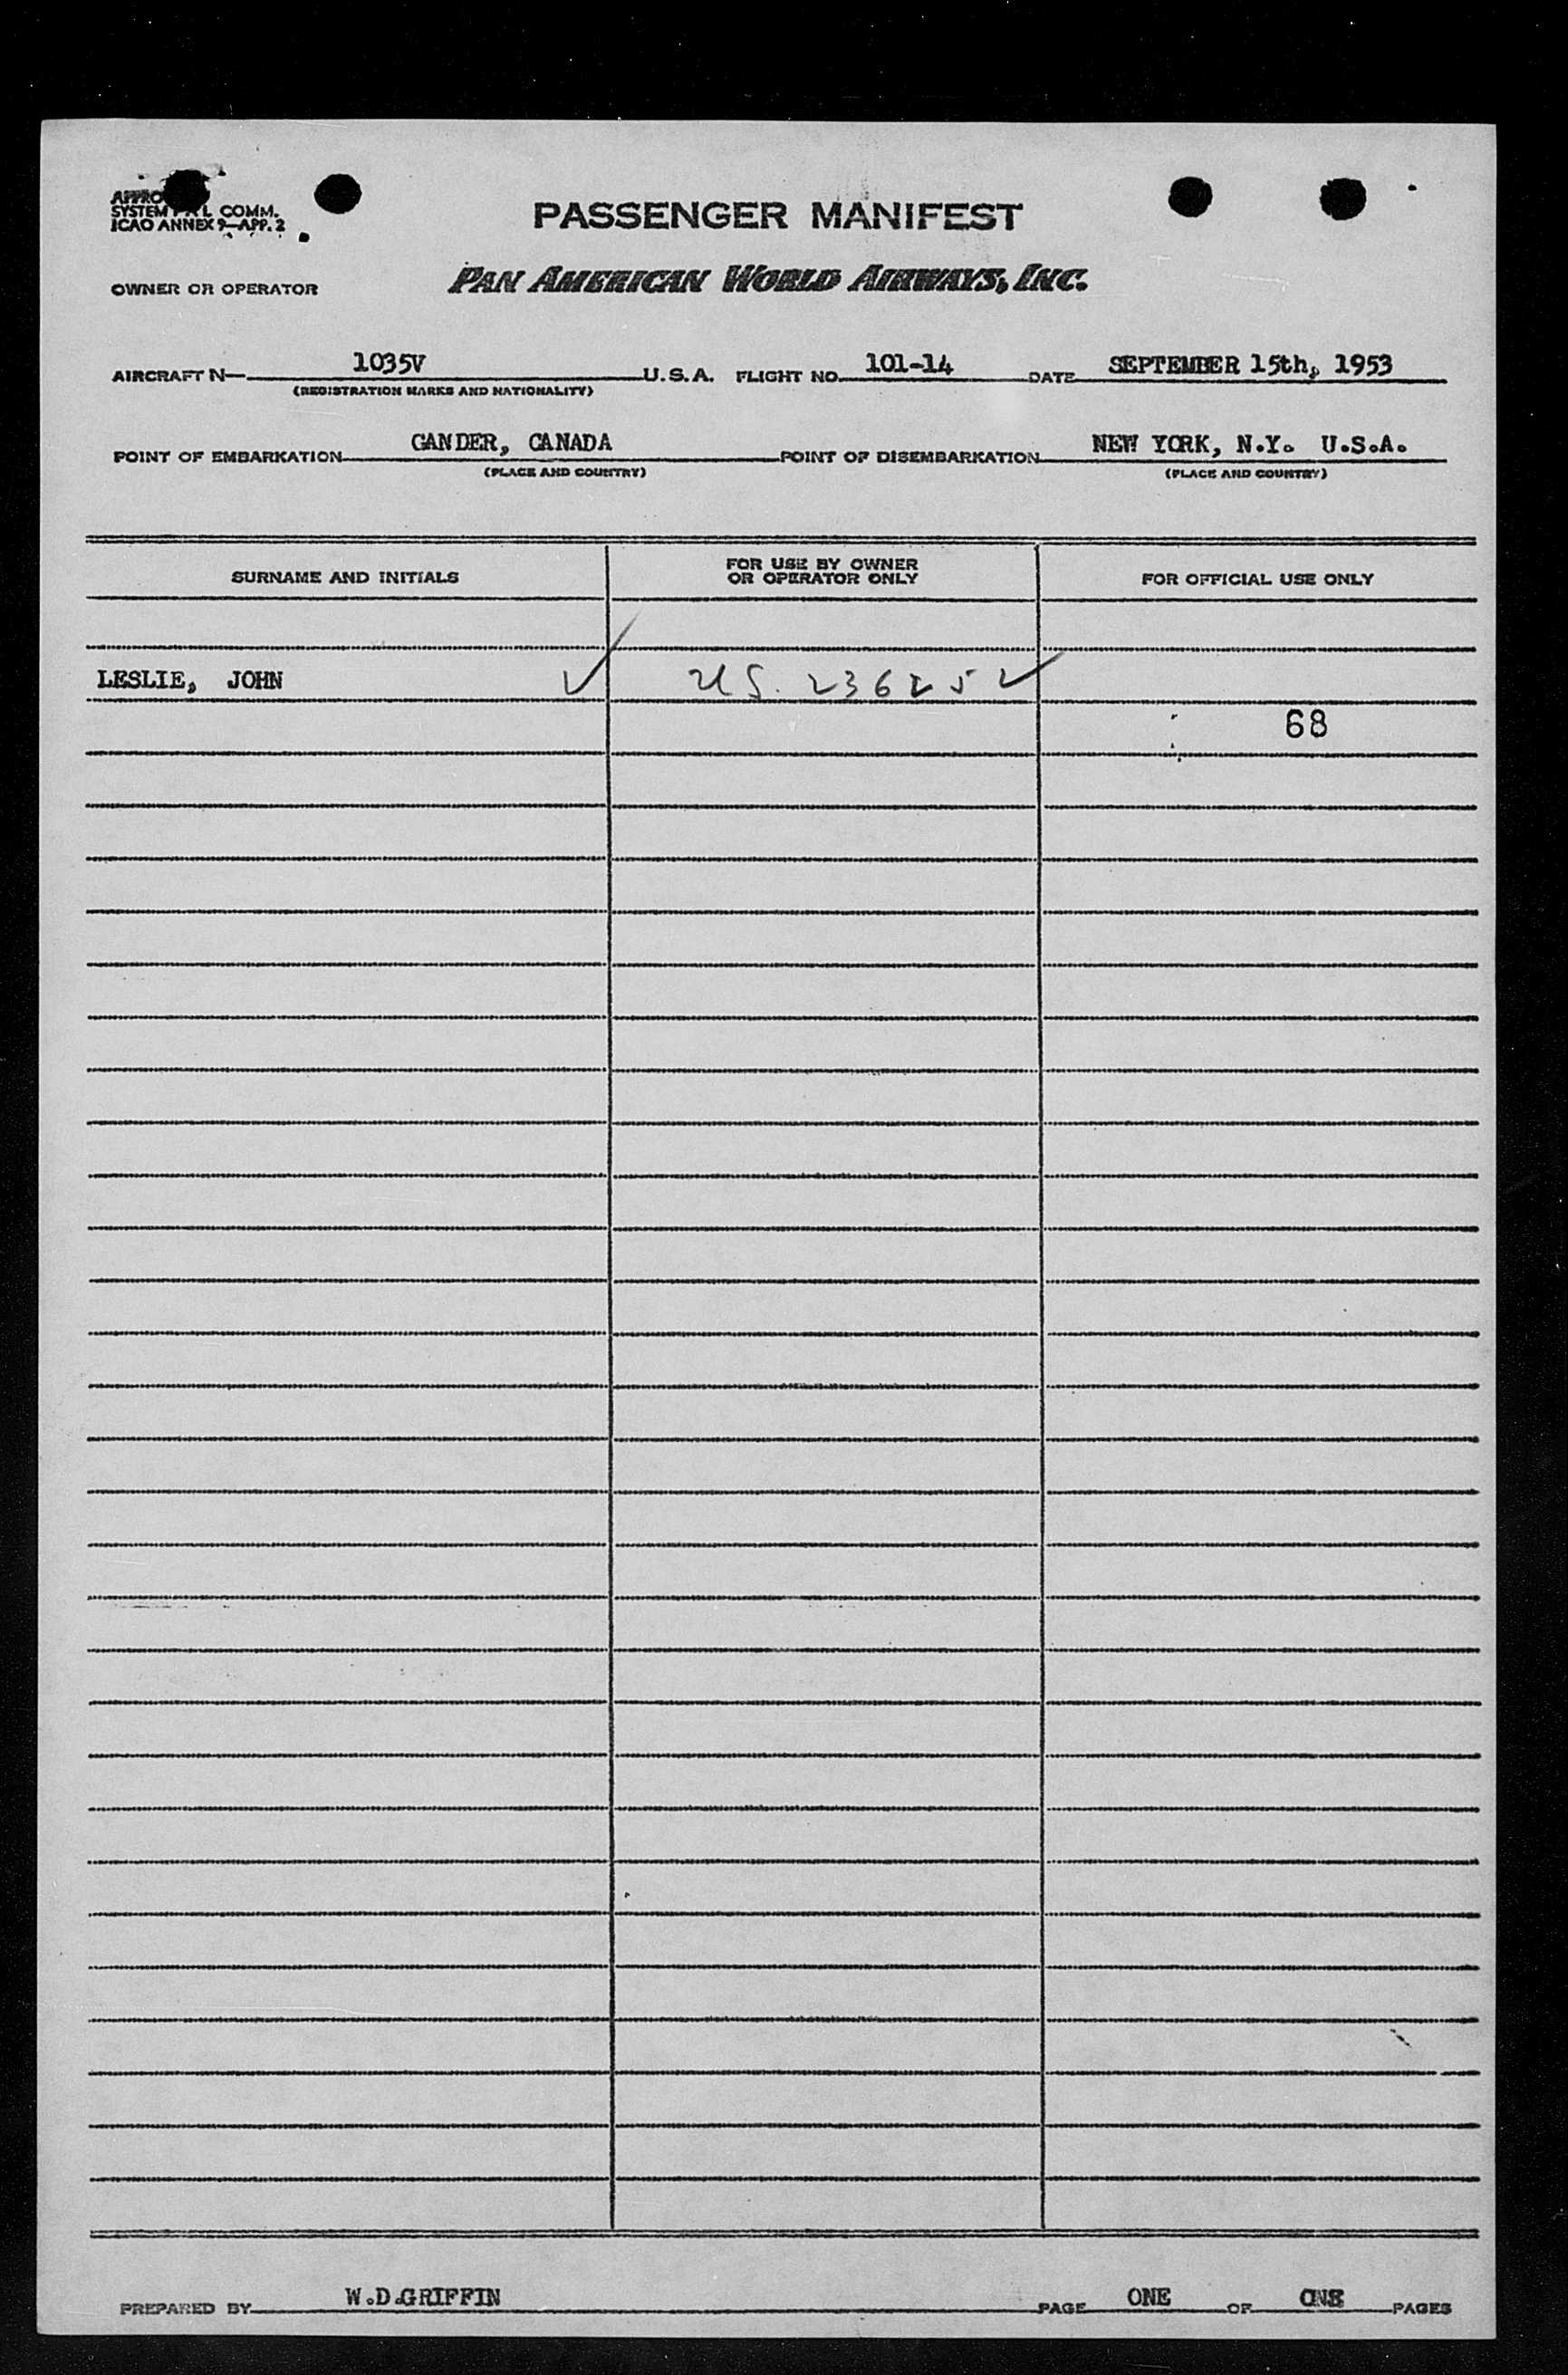 SYSTEM COMM.
ICAO ANNEX 9—APP. 2
PASSENGER MANIFEST
OWNER OR OPERATOR PAN AMERICAN WORLD AIRWAYS, INC.
AIRCRAFT N— 1035V U.S.A. FLIGHT NO. 101-14 DATE SEPTEMBER 15th, 1953
(REGISTRATION MARKS AND NATIONALITY)
POINT OF EMBARKATION GANDER, CANADA POINT OF DISEMBARKATION NEW YORK, N.Y. U.S.A.
(PLACE AND COUNTRY) (PLACE AND COUNTRY)
SURNAME AND INITIALS
FOR USE BY OWNER
OR OPERATOR ONLY
FOR OFFICIAL USE ONLY
LESLIE, JOHN ✓ US. 236252 ✓
68
PREPARED BY W.D.GRIFFIN PAGE ONE OF ONE PAGES